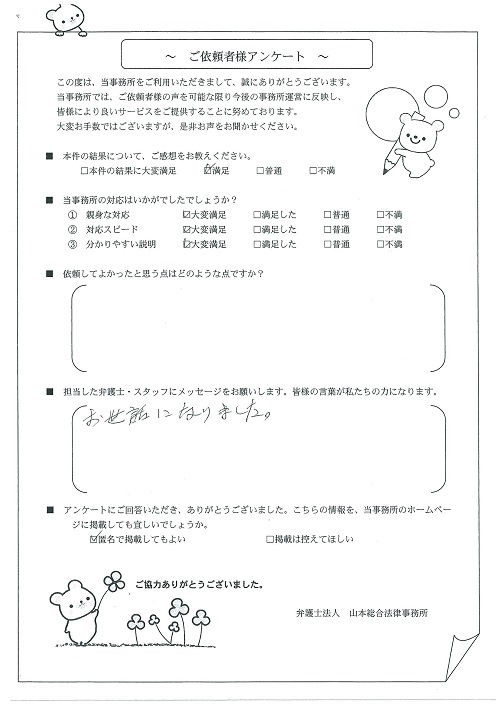 ～ ご依頼者様アンケート ～
この度は、当事務所をご利用いただきまして、誠にありがとうございます。
当事務所では、ご依頼者様の声を可能な限り今後の事務所運営に反映し、
皆様により良いサービスをご提供することに努めております。
大変お手数ではございますが、是非お声をお聞かせください。
■ 本件の結果について、ご感想をお教えください。
□本件の結果に大変満足 ☑満足 □普通 □不満
■ 当事務所の対応はいかがでしたでしょうか？
① 親身な対応 ☑大変満足 □満足した □普通 □不満
② 対応スピード ☑大変満足 □満足した □普通 □不満
③ 分かりやすい説明 ☑大変満足 □満足した □普通 □不満
■ 依頼してよかったと思う点はどのような点ですか？
■ 担当した弁護士・スタッフにメッセージをお願いします。皆様の言葉が私たちの力になります。
お世話になりました。
■ アンケートにご回答いただき、ありがとうございました。こちらの情報を、当事務所のホームペー
ジに掲載しても宜しいでしょうか。
☑匿名で掲載してもよい □掲載は控えてほしい
ご協力ありがとうございました。
弁護士法人 山本総合法律事務所